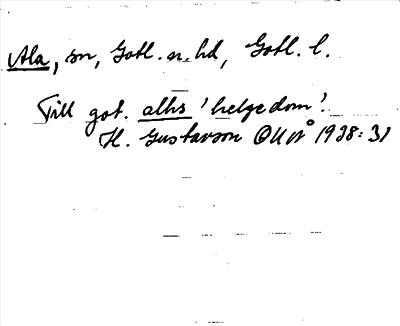 Ala, sn, Gotl. n. hd, Gotl. l.
Till got. alhs 'helgedom'.
H. Gustavson 1938: 31